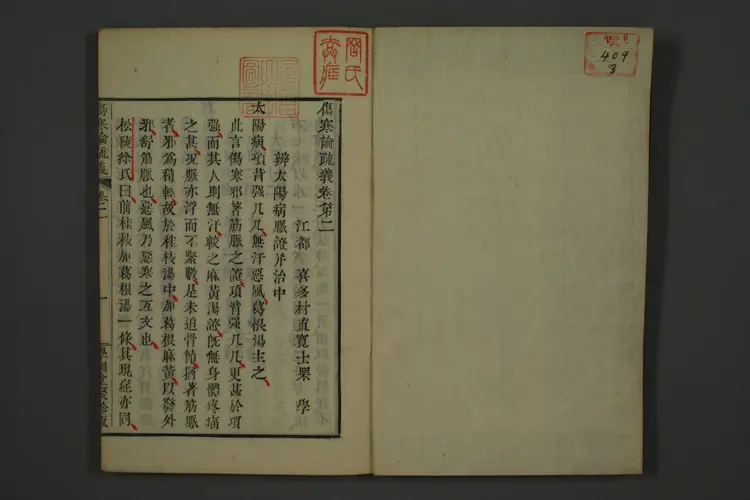 傷寒論疏義卷第二
江都 喜多村直寬士栗 學
辨太陽病脈證并治中
太陽病、項背强几几、無汗惡風、葛根湯主之、
此言傷寒邪著筋脈之證、項背强几几、更甚於項
强、而其人則無汗、較之麻黃湯證、旣無身體疼痛
之甚、況脈亦浮而不緊數、是未迫骨節、猶著筋脈
者、邪爲稍輕、故於桂枝湯中、加葛根麻黃、以發外
邪、舒筋脈也、惡風乃惡寒之互文也、
松陵徐氏曰、前桂枝加葛根湯一條、其現症亦同、
傷寒論疏義 卷二 一 學訓堂聚珍版
岡氏
409
3